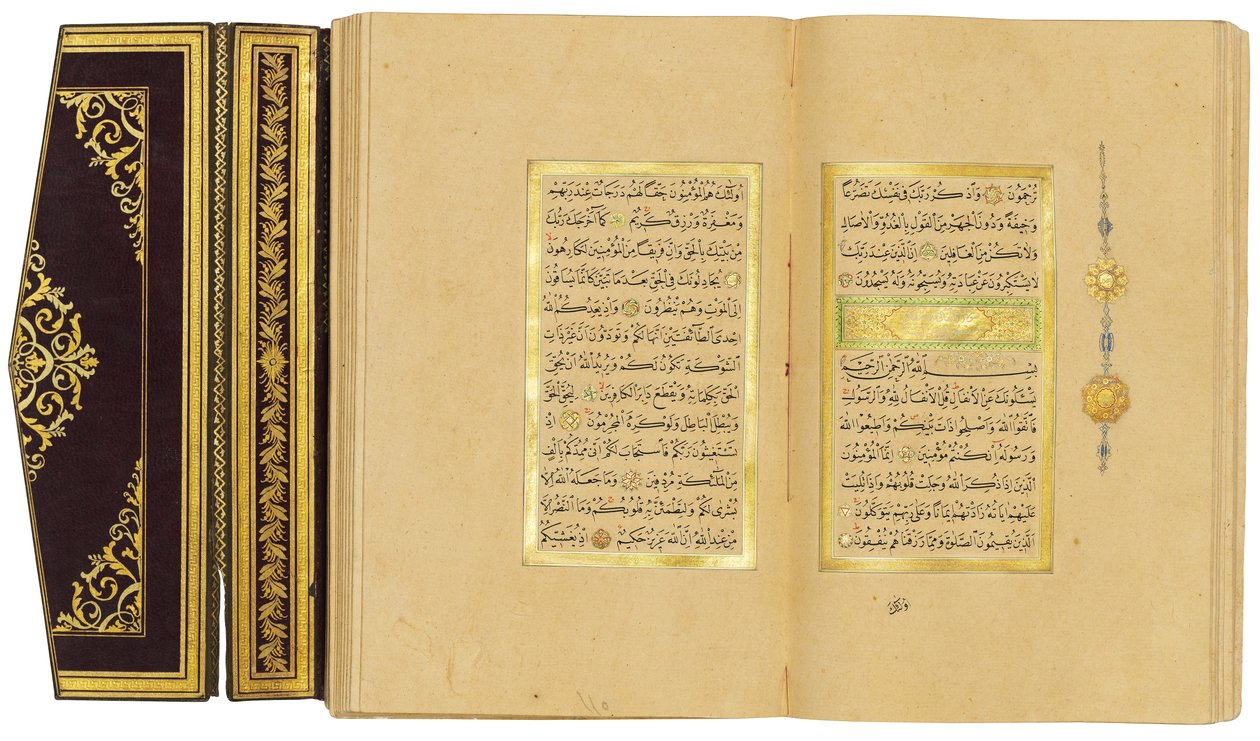 تُرْحَمُونَ وَاذْكُرْ رَبَّكَ فِي نَفْسِكَ تَضَرُّعًا
وَخِيفَةً وَدُونَ الْجَهْرِ مِنَ الْقَوْلِ بِالْغُدُوِّ وَالْاٰصَالِ
وَلَا تَكُنْ مِنَ الْغَافِلِينَ اِنَّ الَّذِينَ عِنْدَ رَبِّكَ
لَا يَسْتَكْبِرُونَ عَنْ عِبَادَتِهِ وَيُسَبِّحُونَهُ وَلَهُ يَسْجُدُونَ
بِسْمِ اللّٰهِ الرَّحْمٰنِ الرَّحِيمِ
يَسْـَٔلُونَكَ عَنِ الْاَنْفَالِ قُلِ الْاَنْفَالُ لِلّٰهِ وَالرَّسُولِ
فَاتَّقُوا اللّٰهَ وَاَصْلِحُوا ذَاتَ بَيْنِكُمْ وَاَطِيعُوا اللّٰهَ
وَرَسُولَهُ اِنْ كُنْتُمْ مُؤْمِنِينَ اِنَّمَا الْمُؤْمِنُونَ
الَّذِينَ اِذَا ذُكِرَ اللّٰهُ وَجِلَتْ قُلُوبُهُمْ وَاِذَا تُلِيَتْ
عَلَيْهِمْ اٰيَاتُهُ زَادَتْهُمْ اِيمَانًا وَعَلٰى رَبِّهِمْ يَتَوَكَّلُونَ
الَّذِينَ يُقِيمُونَ الصَّلٰوةَ وَمِمَّا رَزَقْنَاهُمْ يُنْفِقُونَ
اولئك
اُولٰئِكَ هُمُ الْمُؤْمِنُونَ حَقًّا لَهُمْ دَرَجَاتٌ عِنْدَ رَبِّهِمْ
وَمَغْفِرَةٌ وَرِزْقٌ كَرِيمٌ كَمَا اَخْرَجَكَ رَبُّكَ
مِنْ بَيْتِكَ بِالْحَقِّ وَاِنَّ فَرِيقًا مِنَ الْمُؤْمِنِينَ لَكَارِهُونَ
يُجَادِلُونَكَ فِي الْحَقِّ بَعْدَ مَا تَبَيَّنَ كَاَنَّمَا يُسَاقُونَ
اِلَى الْمَوْتِ وَهُمْ يَنْظُرُونَ وَاِذْ يَعِدُكُمُ اللّٰهُ
اِحْدَى الطَّائِفَتَيْنِ اَنَّهَا لَكُمْ وَتَوَدُّونَ اَنَّ غَيْرَ ذَاتِ
الشَّوْكَةِ تَكُونُ لَكُمْ وَيُرِيدُ اللّٰهُ اَنْ يُحِقَّ
الْحَقَّ بِكَلِمَاتِهِ وَيَقْطَعَ دَابِرَ الْكَافِرِينَ لِيُحِقَّ الْحَقَّ
وَيُبْطِلَ الْبَاطِلَ وَلَوْ كَرِهَ الْمُجْرِمُونَ اِذْ
تَسْتَغِيثُونَ رَبَّكُمْ فَاسْتَجَابَ لَكُمْ اَنِّي مُمِدُّكُمْ بِاَلْفٍ
مِنَ الْمَلٰئِكَةِ مُرْدِفِينَ وَمَا جَعَلَهُ اللّٰهُ اِلَّا
بُشْرٰى لَكُمْ وَلِتَطْمَئِنَّ بِهِ قُلُوبُكُمْ وَمَا النَّصْرُ اِلَّا
مِنْ عِنْدِ اللّٰهِ اِنَّ اللّٰهَ عَزِيزٌ حَكِيمٌ اِذْ يُغَشِّيكُمُ